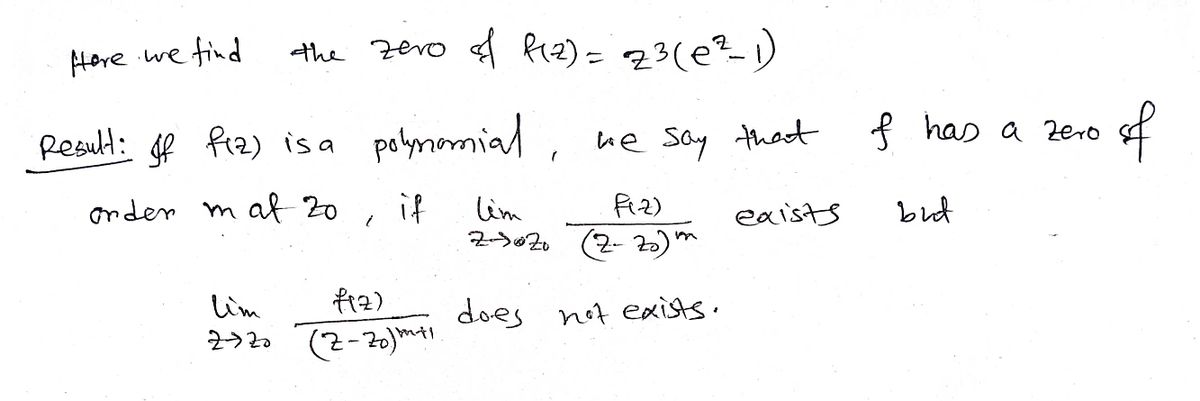 Here we find the zero of f(z) = z³(e^z - 1)
Result: If f(z) is a polynomial, we say that f has a zero of
order m at z₀, if lim_{z→z₀} f(z)/(z-z₀)^m exists but
lim_{z→z₀} f(z)/(z-z₀)^{m+1} does not exists.